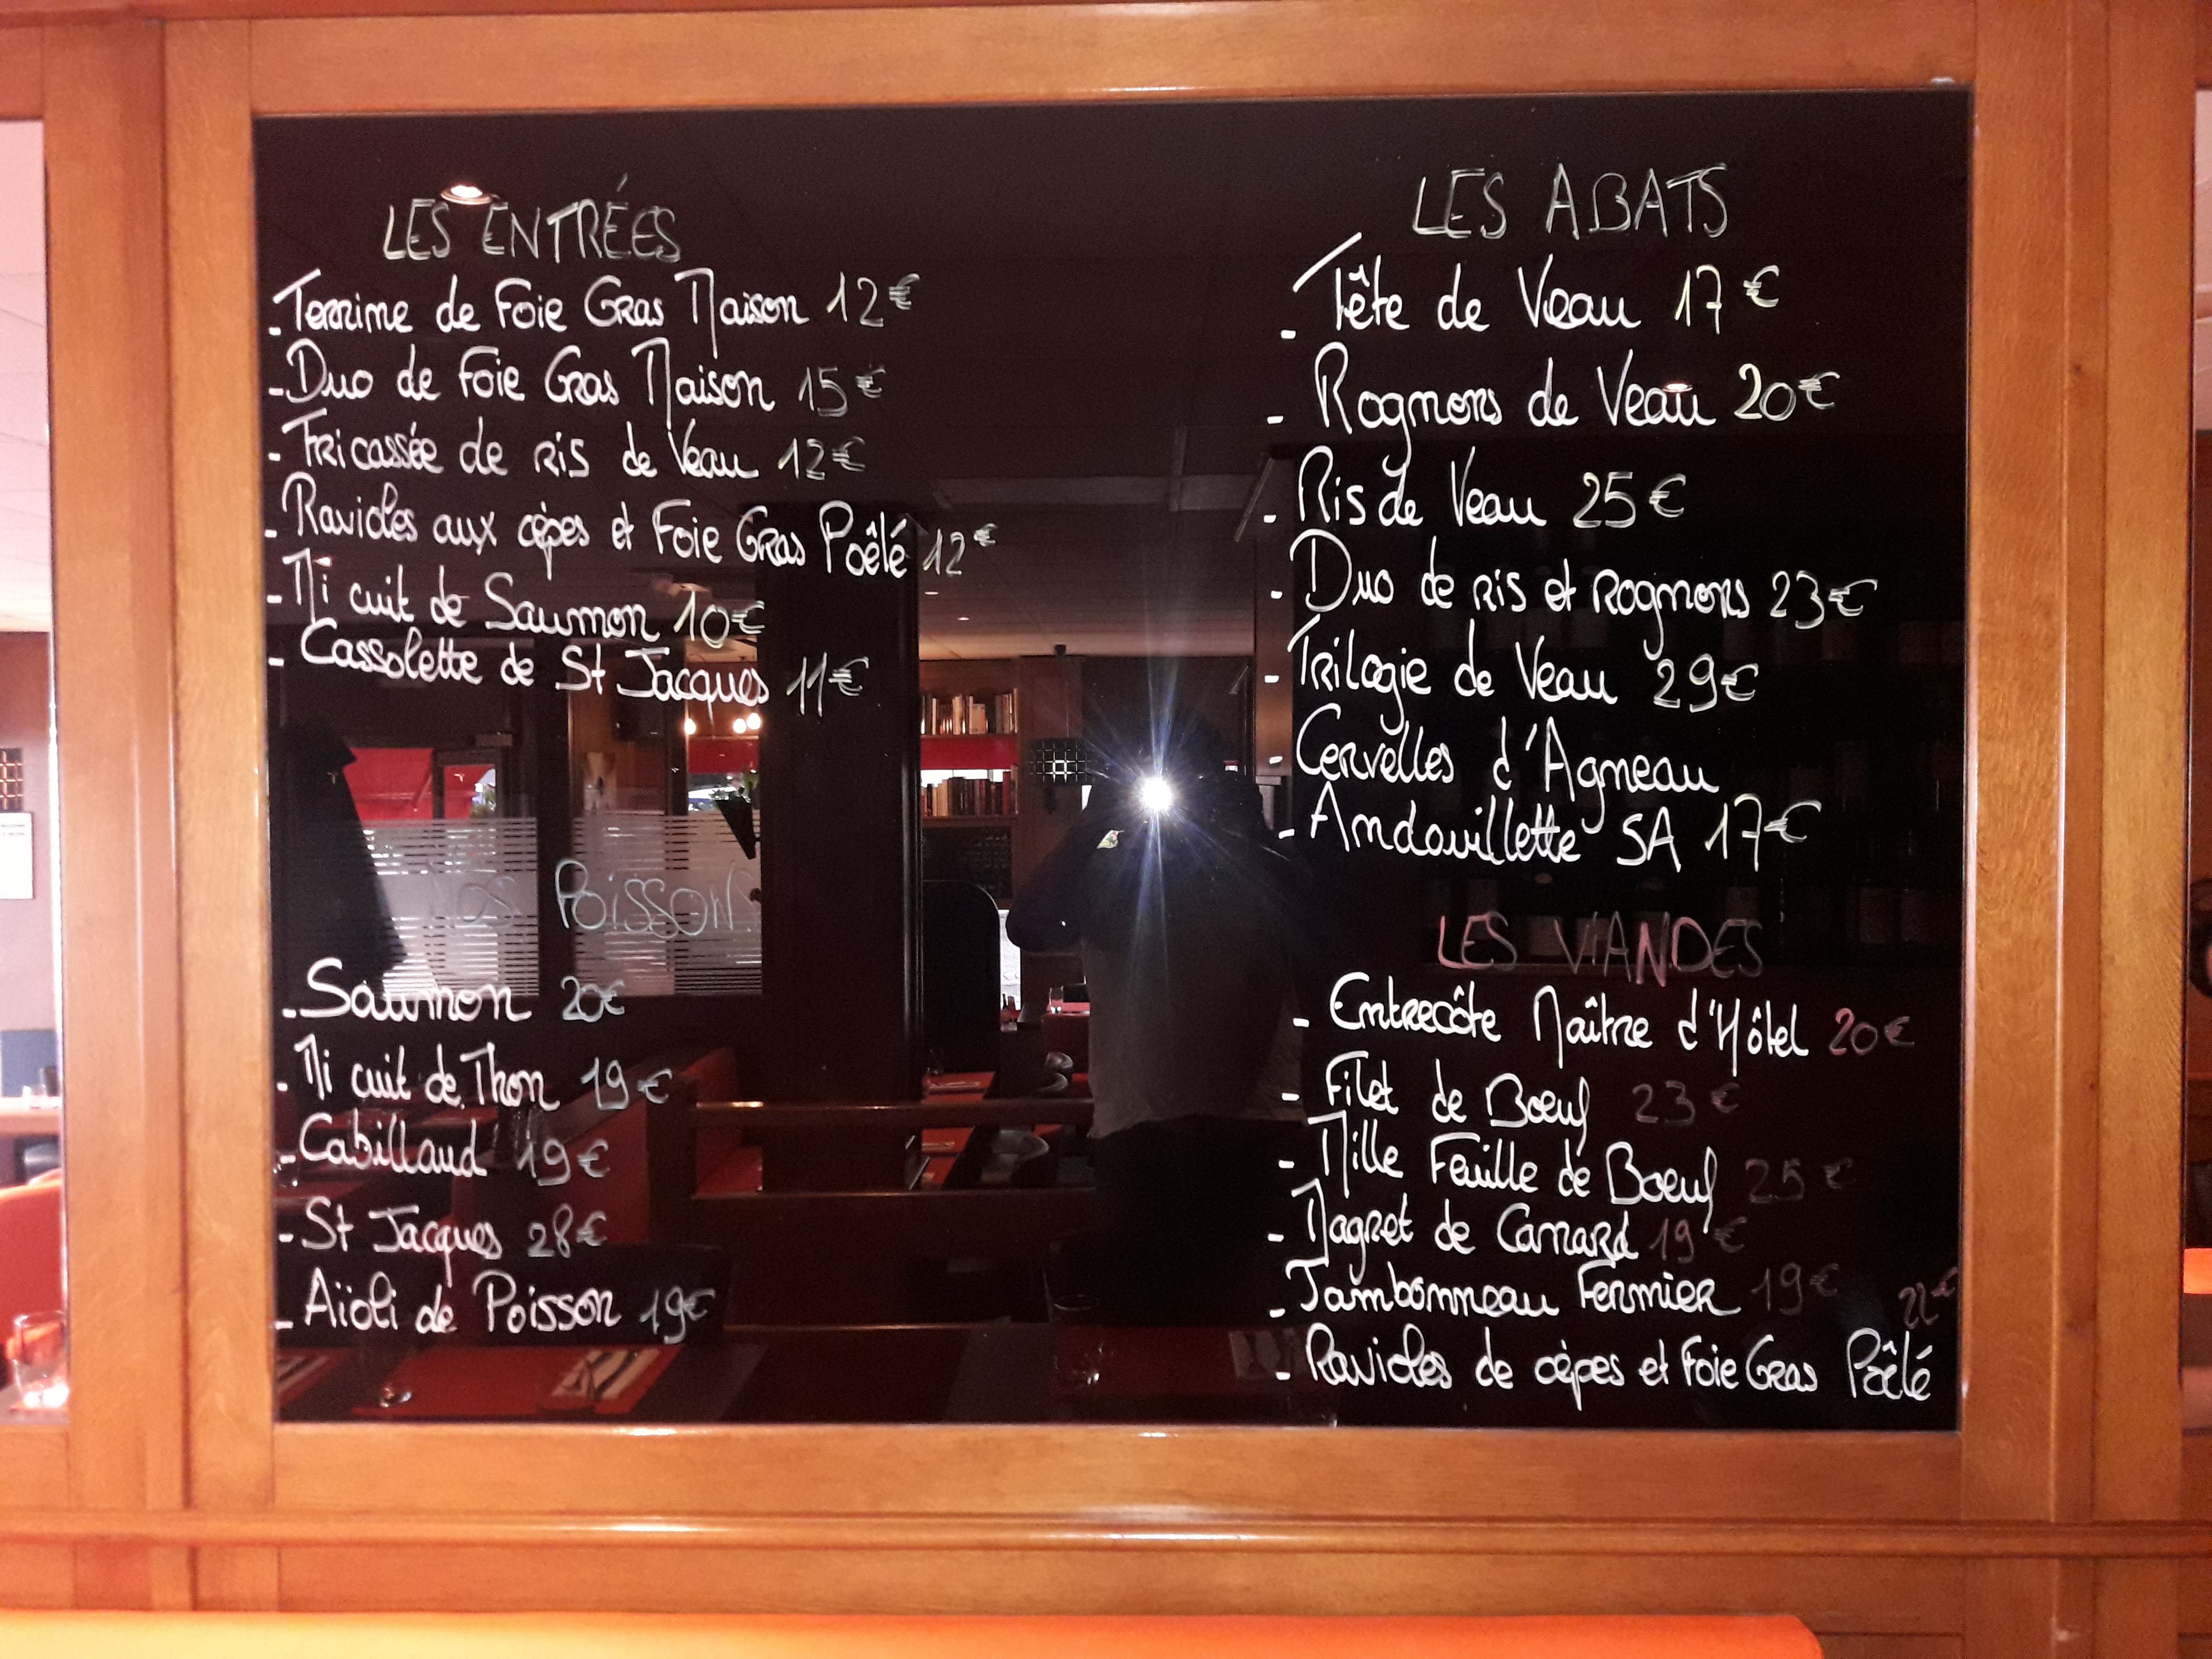 LES ENTRÉES
- Terrine de Foie Gras Maison 12€
- Duo de Foie Gras Maison 15€
- Fricassée de ris de Veau 12€
- Ravioles aux cèpes et Foie Gras Poêlé 12€
- Mi cuit de Saumon 10€
- Cassolette de St Jacques 11€
NOS POISSONS
- Saumon 20€
- Mi cuit de Thon 19€
- Cabillaud 19€
- St Jacques 28€
- Aïoli de Poisson 19€
LES ABATS
- Tête de Veau 17€
- Rognons de Veau 20€
- Ris de Veau 25€
- Duo de ris et rognons 23€
- Trilogie de Veau 29€
- Cervelles d'Agneau
- Andouillette 5A 17€
LES VIANDES
- Entrecôte Maître d'Hôtel 20€
- Filet de Boeuf 23€
- Mille Feuille de Boeuf 25€
- Magret de Canard 19€
- Jambonneau Fermier 19€
22€
- Ravioles de cèpes et Foie Gras Poêlé